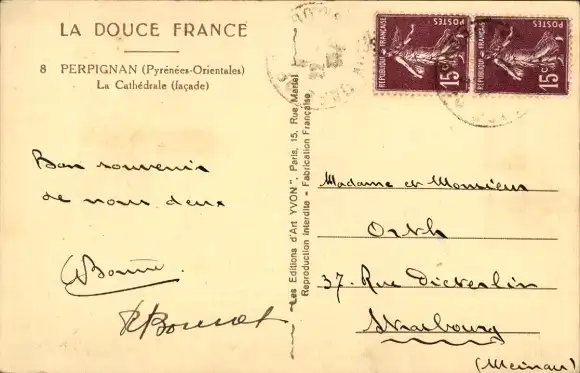 LA DOUCE FRANCE
8 PERPIGNAN (Pyrénées-Orientales)
La Cathédrale (façade)
Bon souvenir
de nous deux
Les Editions d'Art YVON", Paris, 15, Rue Martel
Reproduction Interdite - Fabrication Française
REPUBLIQUE FRANÇAISE
POSTES
15c
REPUBLIQUE FRANÇAISE
POSTES
15c
Madame et Monsieur
Orth
37. Rue
Strasbourg
(Meinau)